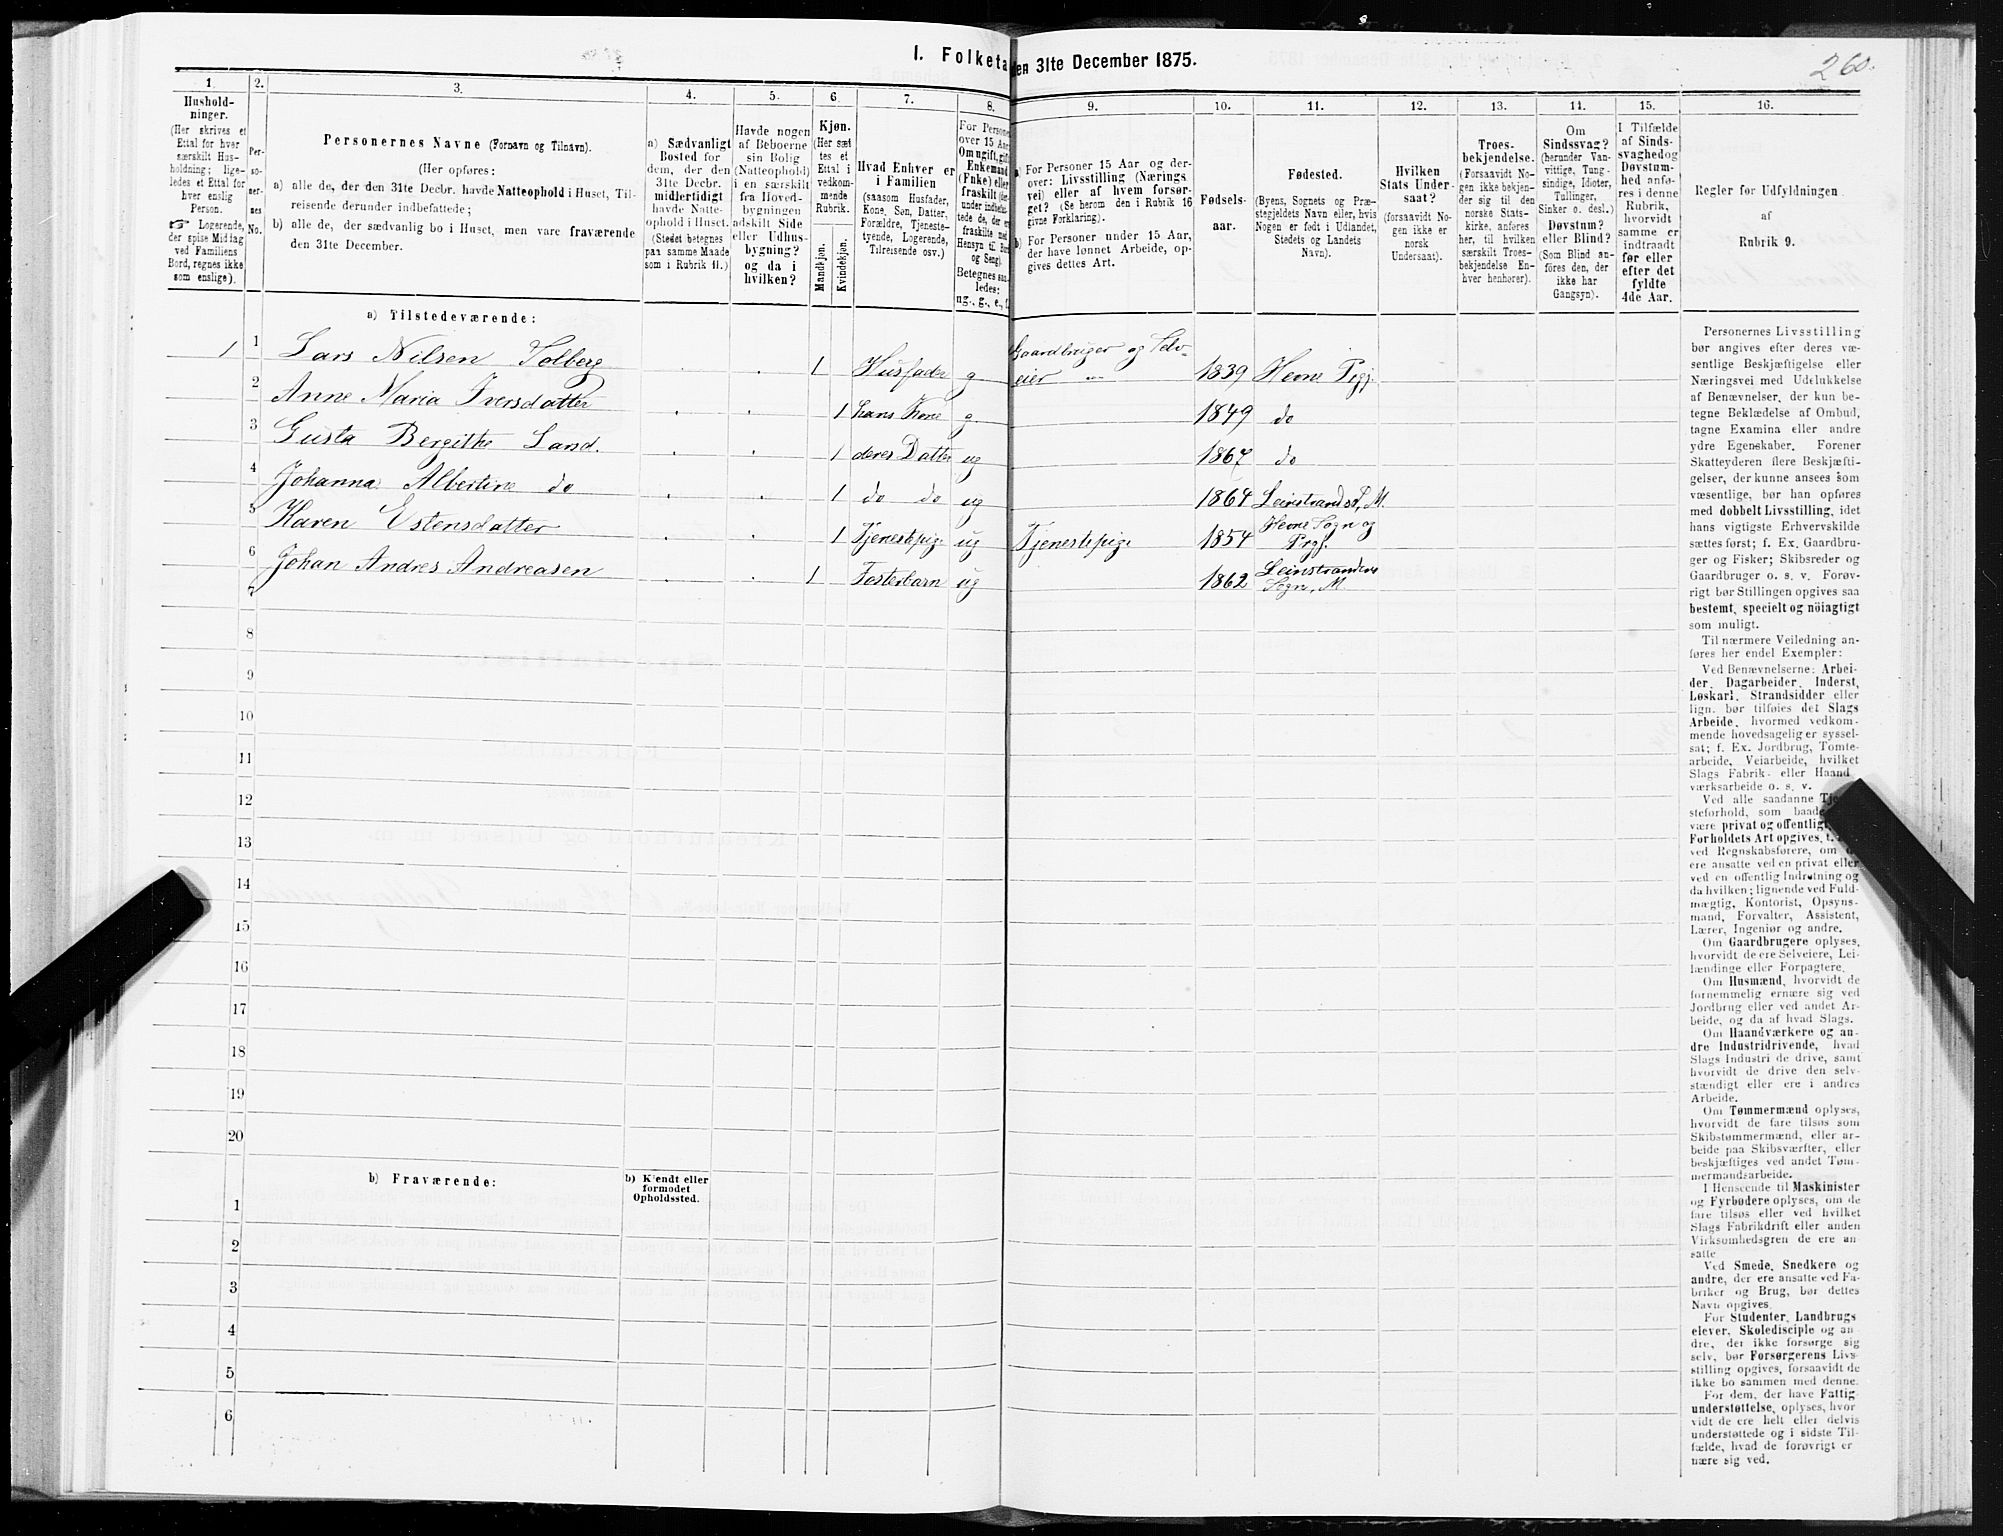 I. Folketa
den 31te December 1875.
260.
1. 2. 3. 4. 5. 6. 7. 8. 9. 10. 11. 12. 13. 14. 15. 16.
Hushold-
ninger.
(Her skrives et
Ettal for hver
særskilt Hus-
holdning; lige-
ledes et Ettal for
hver enslig
Person.
☞ Logerende,
der spise Middag
ved Familiens
Bord, regnes ikke
som enslige).
Per-
so-
ner-
nes
No.
Personernes Navne (Fornavn og Tilnavn).
(Her opføres:
a) alle de, der den 31te Decbr. havde Natteophold i Huset, Til-
reisende derunder indbefattede;
b) alle de, der sædvanlig bo i Huset, men vare fraværende
den 31te December.
a) Sædvanligt
Bosted for
dem, der den
31te Decbr.
midlertidigt
havde Natte-
ophold i Huset.
(Stedet betegnes
paa samme Maade
som i Rubrik 11.)
Havde nogen
af Beboerne
sin Bolig
(Natteophold)
i en særskilt
fra Hoved-
bygningen
adskilt Side
eller Udhus-
bygning?
og da i
hvilken?
Kjøn.
(Her sæt
tes et
Ettal i
vedkom-
mende
Rubrik.
Mandkjøn.
Kvindekjøn.
Hvad Enhver er
i Familien
(saasom Husfader,
Kone, Søn, Datter,
Forældre, Tjeneste-
tyende, Logerende,
Tilreisende osv.)
For Persone
over 15 Aar
Om ugift, gift
Enkemand
(Enke) eller
fraskilt (der
under indbefat-
tede de, der er
fraskilte med
Hensyn til Bor
og Seng).
Betegnes saa-
ledes:
ug., g., e., f.
a) For Personer 15 Aar og der-
over: Livsstilling (Nærings
vei) eller af hvem forsør-
get? (Se herom den i Rubrik 16
givne Forklaring).
b) For Personer under 15 Aar,
der have lønnet Arbeide, op-
gives dettes Art.
Fødsels-
aar.
Fødested.
(Byens, Sognets og Præ-
stegjeldets Navn eller, hvis
Nogen er født i Udlandet,
Stedets og Landets
Navn).
Hvilken
Stats Under-
saat?
(forsaavidt No-
gen ikke er
norsk
Undersaat).
Troes-
bekjendelse.
(Forsaavidt No-
gen ikke bekjen-
der sig til den
norske Stats-
kirke, anføres
her, til hvilken
særskilt Troes-
bekjendelse En-
hver henhører).
Om
Sindssvag?
(herunder Van-
vittige, Tung-
sindige, Idioter,
Tullinger,
Sinker o. desl.)
Døvstum?
eller Blind?
(Som Blind an-
føres den, der
ikke har
Gangsyn).
I Tilfælde
af Sinds-
svaghed og
Døvstum-
hed anfø-
res i denne
Rubrik,
hvorvidt
samme er
indtraadt
før eller
efter det
fyldte
4de Aar.
Regler for Udfyldningen
af
Rubrik 9.
a) Tilstedeværende:
1 1 Lars Nilsen Solberg 1 Husfader g Gaardbruger og Selv-
eier 1839 Hevne Prgj.
2 Anne Maria Iversdatter 1 hans Kone g 1849 do
3 Gusta Bergithe Larsd. 1 deres Datter ug 1867 do
4 Johanna Albertine do 1 do do ug 1864 Leinstrands S, M.
5 Karen Estensdatter 1 Tjenestepige ug Tjenestepige 1854 Hevne Sogn og
Prgj.
6 Johan Andres Andreasen 1 Fosterbarn ug 1862 Leinstrandens
Sogn, M.
7
8
9
10
11
12
13
14
15
16
17
18
19
20
b) Fraværende:
b) Kjendt eller
formodet
Opholdssted.
1
2
3
4
5
6
Personernes Livsstilling
bør angives efter deres væ-
sentlige Beskjæftigelse eller
Næringsvei med Udelukkelse
af Benævnelser, der kun be-
tegne Beklædelse af Ombud,
tagne Examina eller andre
ydre Egenskaber. Forener
Skatteyderen flere Beskjæfti-
gelser, der kunne ansees som
væsentlige, bør han opføres
med dobbelt Livsstilling, idet
hans vigtigste Erhvervskilde
sættes først; f. Ex. Gaardbru-
ger og Fisker; Skibsreder og
Gaardbruger o. s. v. Forøv-
rigt bør Stillingen opgives saa
bestemt, specielt og nöiagtigt
som muligt.
Til nærmere Veiledning an-
føres her endel Exempler:
Ved Benævnelserne: Arbei-
der, Dagarbeider, Inderst,
Løskarl, Strandsidder eller
lign. bør tilføies det Slags
Arbeide, hvormed vedkom-
mende hovedsagelig er syssel-
sat; f. Ex. Jordbrug, Tomte-
arbeide, Veiarbeide, hvilket
Slags Fabrik- eller Haand
værksarbeide o. s. v.
Ved alle saadanne Tje
steforhold, som baade
være privat og offentligt,
Forholdets Art opgives, t.
ved Regnskabsførere, om
ere ansatte ved en privat eller
ved en offentlig Indretning og
da hvilken; lignende ved Fuld-
mægtig, Kontorist, Opsyns-
mand, Forvalter, Assistent,
Lærer, Ingeniør og andre.
Om Gaardbrugere oplyses,
hvorvidt de ere Selveiere, Lei-
lændinge eller Forpagtere.
Om Husmænd, hvorvidt de
fornemmelig ernære sig ved
Jordbrug eller ved andet Ar-
beide, og da af hvad Slags.
Om Haandværkere og an-
dre Industridrivende, hvad
Slags Industri de drive, samt
hvorvidt de drive den selv-
stændigt eller ere i andres
Arbeide.
Om Tømmermænd oplyses,
hvorvidt de fare tilsøs som
Skibstømmermænd, eller ar-
beide paa Skibsværfter, eller
beskjæftiges ved andet Tøm-
mermandsarbeide.
I Henseende til Maskinister
og Fyrbødere oplyses, om de
fare tilsøs eller ved hvilket
Slags Fabrikdrift eller anden
Virksomhedsgren de ere an-
satte
Ved Smede, Snedkere og
andre, der ere ansatte ved Fa-
briker og Brug, bør dettes
Navn opgives.
For Studenter, Landbrugs
elever, Skoledisciple og an
dre, der ikke forsørge sig
selv, bør Forsørgerens Livs-
stilling opgives, forsaavidt de
ikke bo sammen med denne.
For dem, der have Fattig
understøttelse, oplyses, hvor
vidt de ere helt eller delvis
understøttede og i sidste Til-
fælde, hvad de forøvrigt er
nære sig ved.